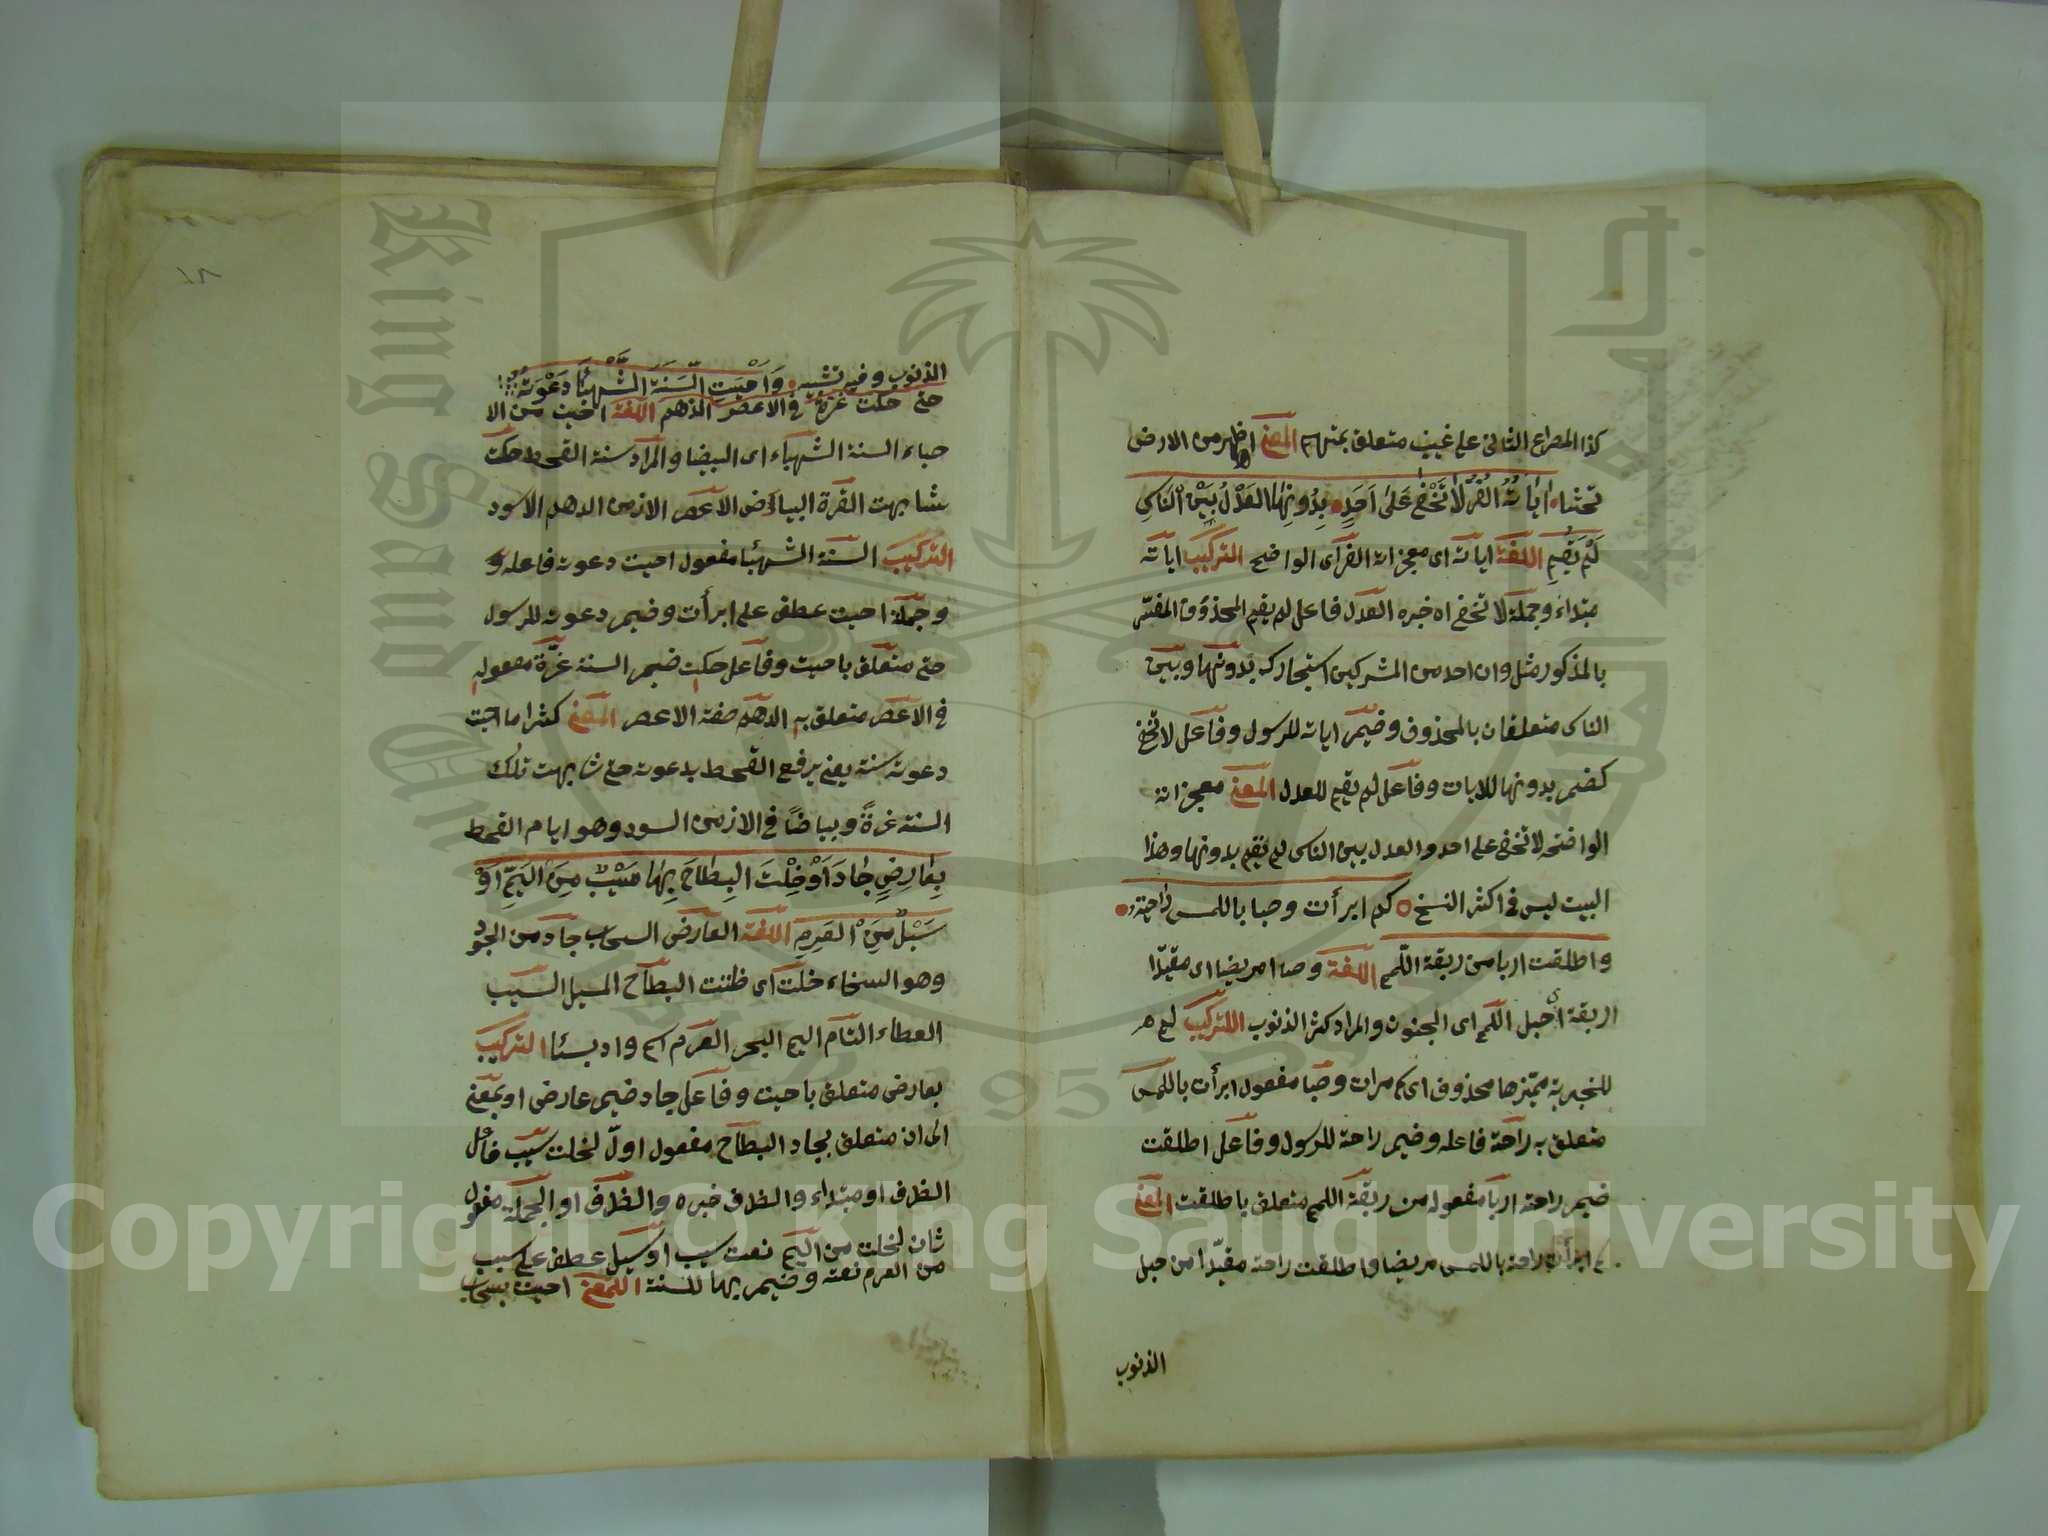 كذا المصراع الثانى على غيب متعلق بمتهم المعنى اظهر من الارض
اٰيَاتُهُ الغُرُّ لاَ تَخْفٰى عَلىٰ اَحَدٍ بِدُونِهَا العَدْلُ بَيْنَ النَّاسِ
لَمْ يَقُمِ اللغة اياته اى معجزاته الغراى الواضح التركيب اياته
مبتداء وجملة لا تخفى اه خبره العدل فاعل لم يقم المحذوف المفسر
بالمذكور مثل وان احد من المشركين استجارك بدونها وبين
الناس متعلقان بالمحذوف وضمير اياته للرسول وفاعل لا تخفى
كضمير بدونها للايات وفاعل لم يقم للعدل المعنى معجزاته
الواضحة لا تخفى على احد والعدل بين الناس لم يقم بدونها وهذا
البيت ليس فى اكثر النسخ كم ابرأت وصبا باللمس راحته
واطلقت اربا من ربقة اللمم اللغة وصبا مريضا اى مقيدا
اربقة اى حبل اللمم اى الجنون والمراد كثر الذنوب التركيب كم
للخبرية مميزها محذوف اى كم مرات وصبا مفعول ابرأت باللمس
متعلق به راحة فاعله وضمير راحة للرسول وفاعل اطلقت
ضمير راحة اربا مفعوله من ربقة اللمم متعلق باطلقت المعنى
كم ابرأت راحة باللمس مريضا واطلقت راحة مقيدا من حبل
الذنوب
١٨
الذنوب وفيه تشبيه وَاَحْيَتِ السَّنَةَ الشَّهْبَاءَ دَعْوَتُهُ
حتى حكت غرة فى الاعصر الدهم اللغة احيت من الا
حياء السنة الشهباء اى البيضا والمراد سنة القحط حكت
شابهت الغرة البياض الاعصر الازمن الدهم الاسود
التركيب السنة الشهبا مفعول احيت دعوته فاعله و
وجملة احيت عطف على ابرأت وضمير دعوته للرسول
حتى متعلق باحيت وفاعل حكت ضمير السنة غرّة مفعوله
فى الاعصر متعلق به الدهم صفة الاعصر المعنى كثيرا ما احيت
دعوته سنة يعنى يرفع القحط بدعوته حتى شابهت تلك
السنة غرةً وبياضًا فى الازمن السود وهو ايام القحط
بِعَارِضٍ جَادَ اَوْ خِلْتَ البِطَاحَ بِهَا سَيْبٌ مِنَ اليَمِّ اَوْ
سَيْلٌ مِنَ العَرِمِ اللغة العارض السحاب جاد من الجود
وهو السخاء خلت اى ظننت البطاح المسيل السيب
العطاء التام اليم البحر العرم اسم واد بسئا التركيب
بعارض متعلق باحيت وفاعل جاد ضمير عارض او بمعنى
الى ان متعلق بجاد البطاح مفعول اول لخلت سيب فاعل
الظرف او مبتداء والظرف خبره والظرف او الجملة مفعول
ثان لخلت من اليم نعت سيب او سيل عطف على سيب
من العرم نعته وضمير بها للسنة المعنى احيت بسحاب
Copyright © King Saud University